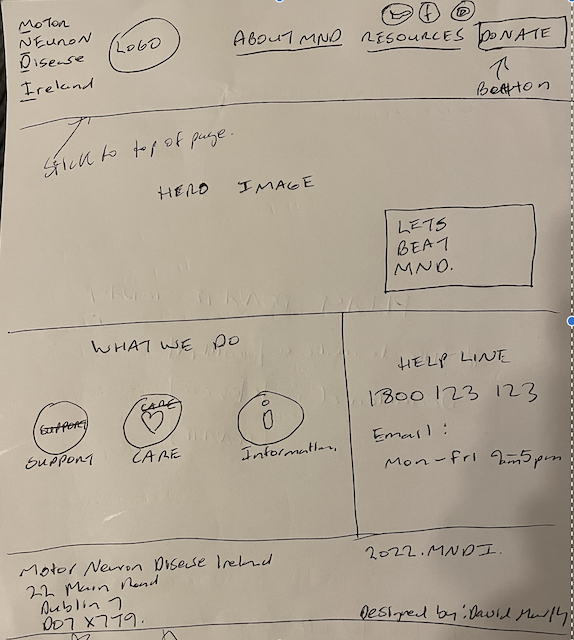 MOTOR
NEURON
Disease
Ireland
LOGO
f
ABOUT MND
RESOURCES
DONATE
Button
Stick to top of page.
HERO IMAGE
LETS
BEAT
MND.
WHAT WE DO
SUPPORT
SUPPORT
CARE
CARE
i
Information
HELP LINE
1800 123 123
Email:
Mon-Fri 9am-5pm
Motor Neuron Disease Ireland
22 Main Road
Dublin 7
2022. MNDI.
Designed by: David